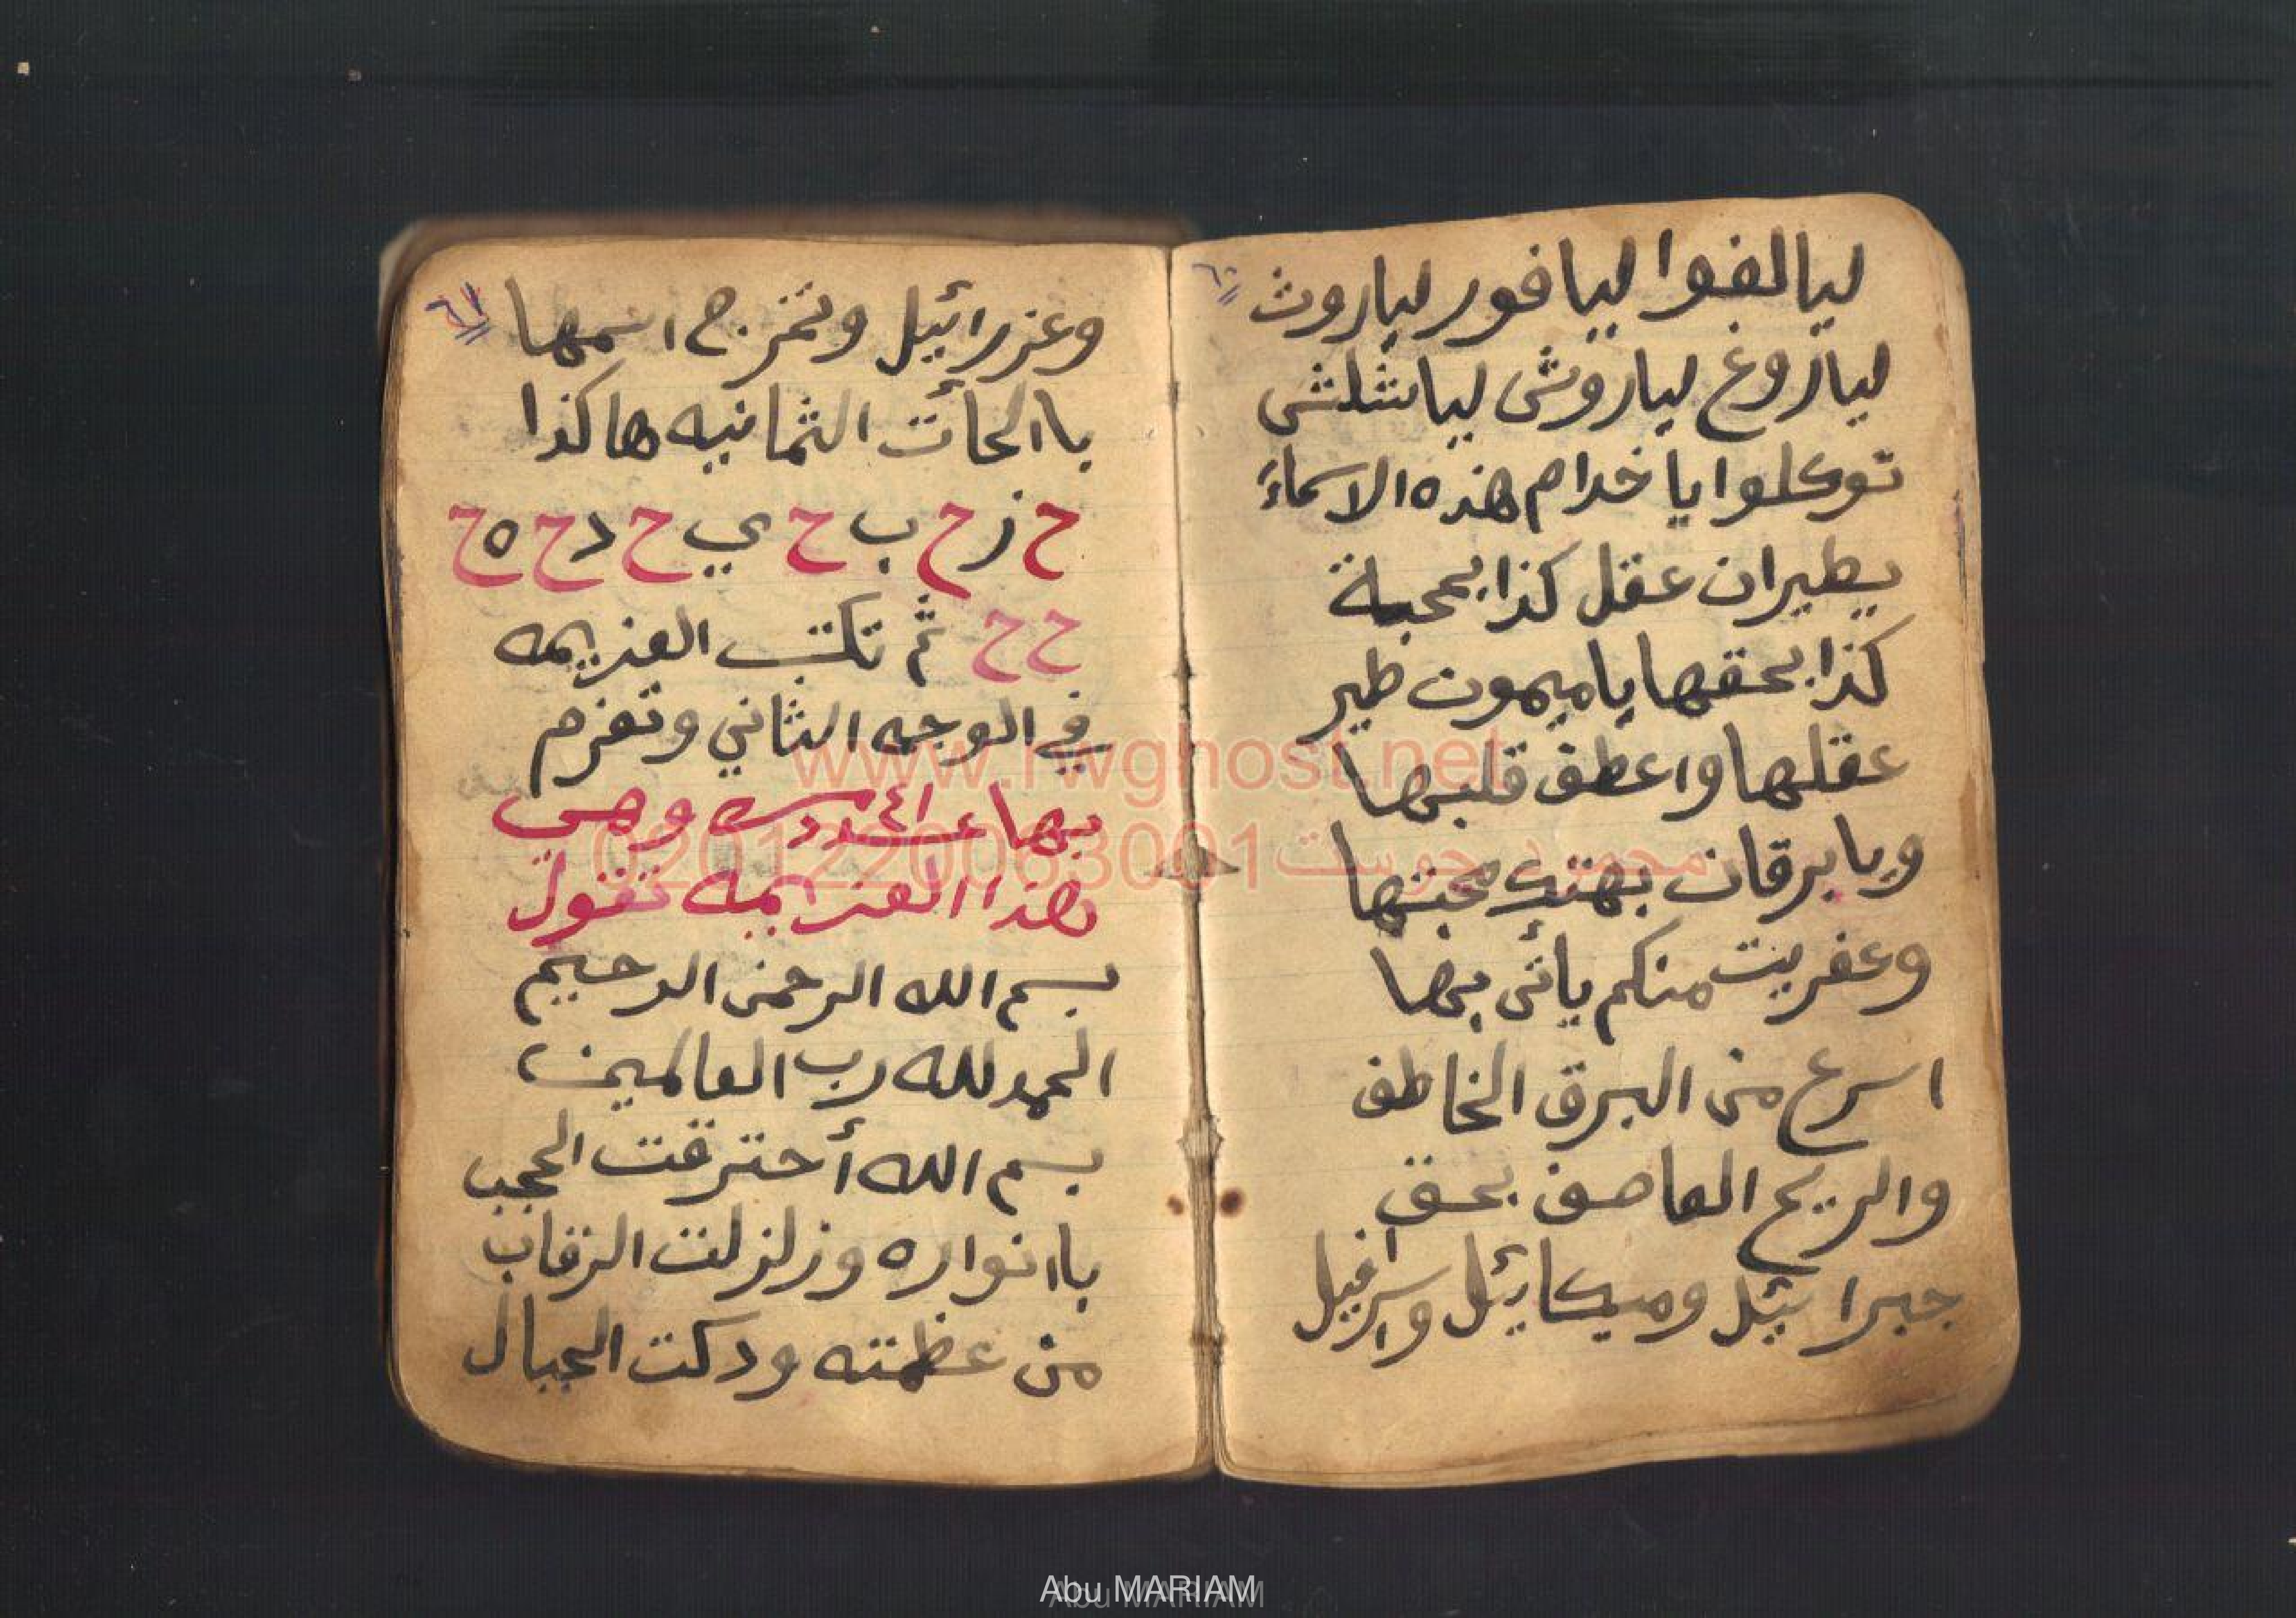 ٦٠
ليالغوا ليافور لياروث
ليازوغ لياروش لياشلش
توكلوا يا خدام هذه الاسماء
بطيران عقل كذا بمحبة
كذا بحقها يا ميمون طير
عقلها واعطف قلبها
ويا برقان بهتك محبتها
وعفريت منكم يأتى بها
اسرع من البرق الخاطف
والريح العاصف بحق
جبرائيل وميكائيل واسرافيل
٦١
وعزرائيل وتمزج اسمها
باالحأت الثمانيه هاكذا
ح ز ح ب ح ي ح د ح ه ح
ح ح ثم تكتب العزيمه
في الوجه الثاني وتعزم
بها عدد مره وهي
هذا العزيمه تقول
بسم الله الرحمن الرحيم
الحمد لله رب العالمين
بسم الله أحترقت الحجب
باانواره وزلزلت الرقاب
من عظمته ودكت الجبال
www.rwghost.net
محمود جوست 0201220063001
Abu MARIAM
Abu MARIAM